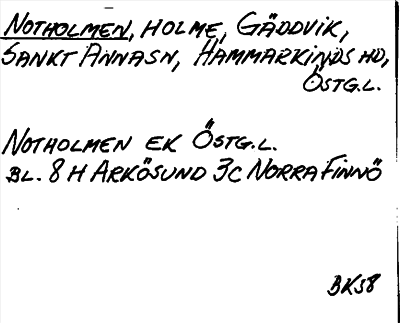 NOTHOLMEN, HOLME, GÄDDVIK,
SANKT ANNASN, HAMMARKINDS HD,
ÖSTG.L.
NOTHOLMEN EK ÖSTG.L.
BL. 8 H ARKÖSUND 3C NORRA FINNÖ
BK58